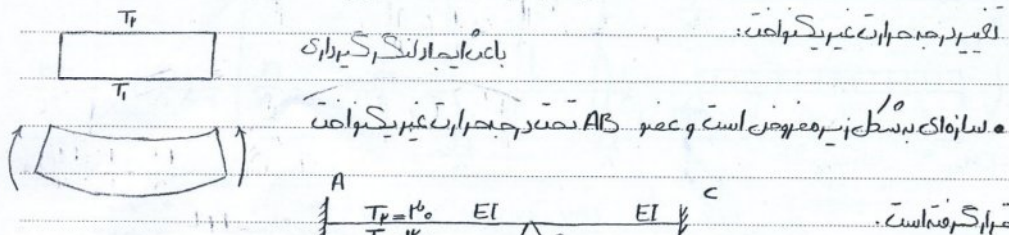 تغییر درجه حرارت غیر یکنواخت:
T₂
باعث ایجاد لنگر گیرداری
T₁
• سازه‌ای به شکل زیر مفروض است و عضو AB تحت درجه حرارت غیر یکنواخت
قرار گرفته است.
A C
T₂=۳۰ EI EI